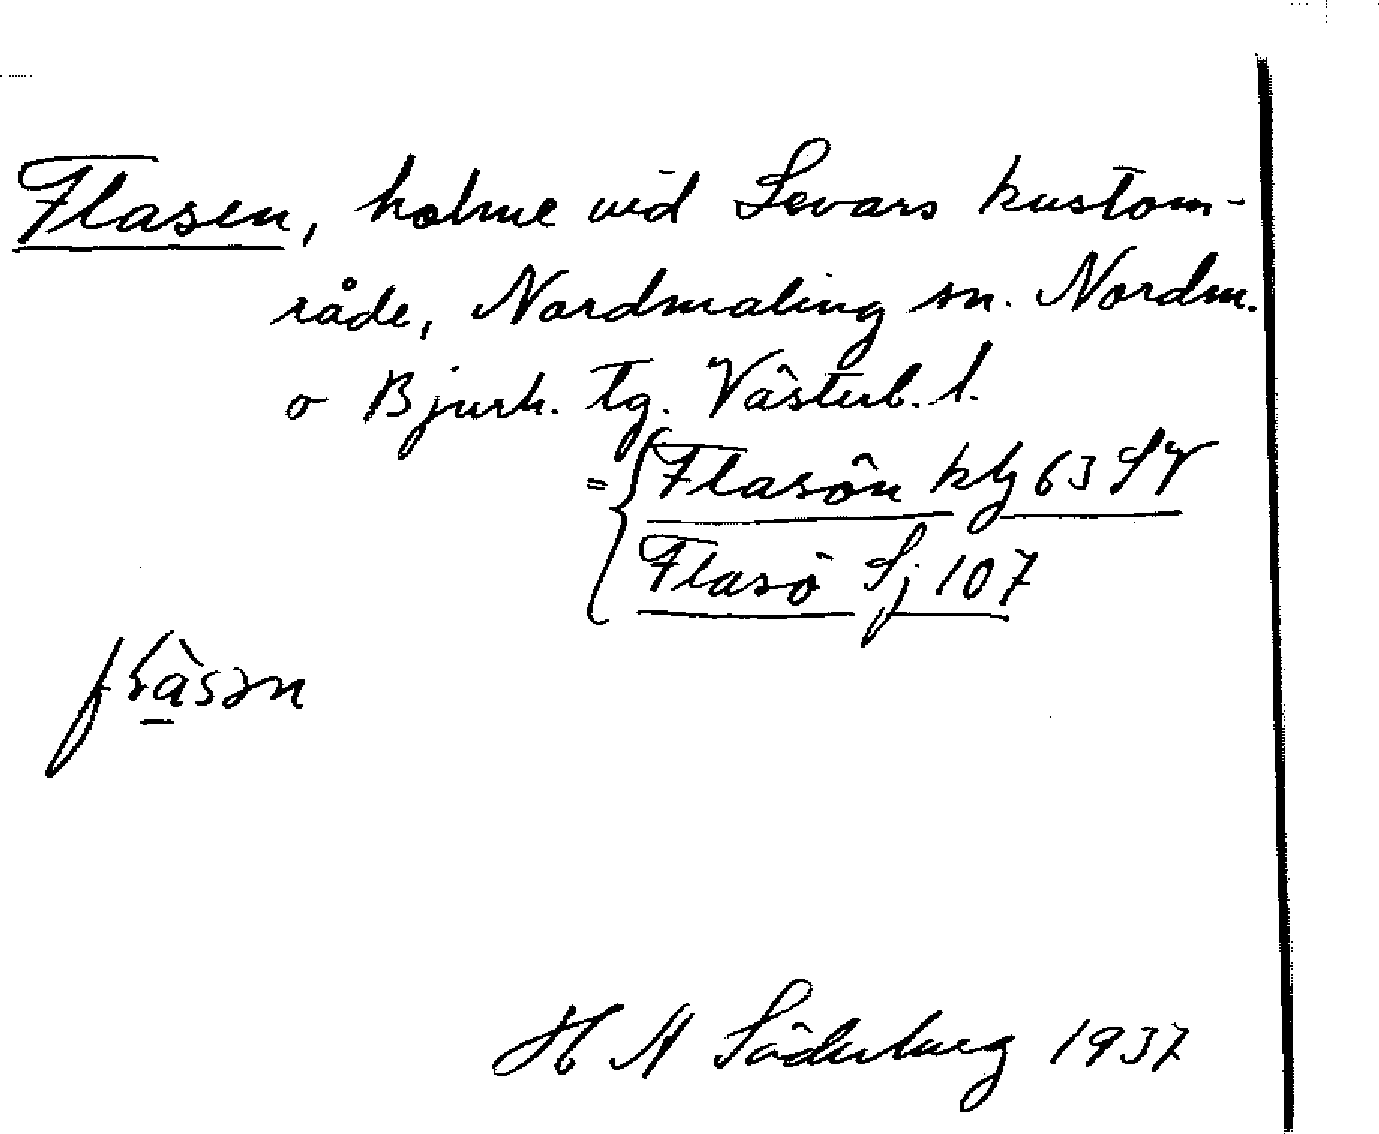 Flasen, holme vid Levars kustom-
råde, Nordmaling sn. Nordm.
o Bjurh. tg. Västerb. l.
= { Flasön kbl 63 SV
Flasö Sj 107
H Söderberg 1937